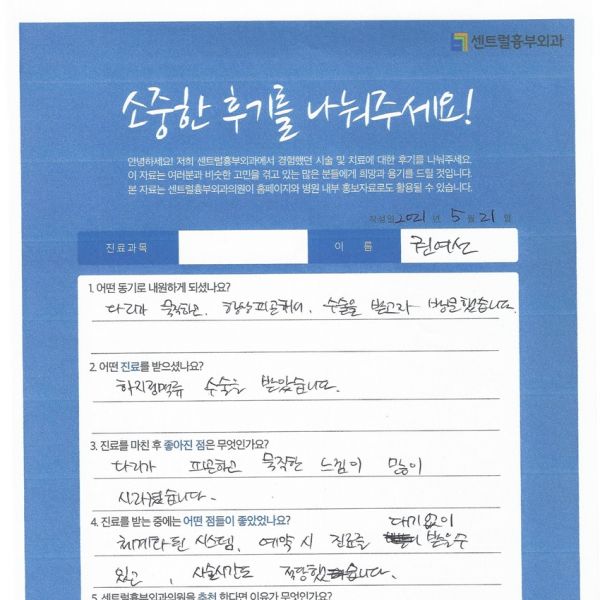 센트럴흉부외과
소중한 후기를 나눠주세요!
안녕하세요! 저희 센트럴흉부외과에서 경험했던 시술 및 치료에 대한 후기를 나눠주세요.
이 자료는 여러분과 비슷한 고민을 겪고 있는 많은 분들에게 희망과 용기를 드릴 것입니다.
본 자료는 센트럴흉부외과의원이 홈페이지와 병원 내부 홍보자료로도 활용될 수 있습니다.
작성일 2021 년 5 월 21 일
진료과목 이 름 권여선
1. 어떤 동기로 내원하게 되셨나요?
다리가 묵직하고, 항상피곤해서, 수술을 받고자 방문했습니다.
2. 어떤 진료를 받으셨나요?
하지정맥류 수술을 받았습니다.
3. 진료를 마친 후 좋아진 점은 무엇인가요?
다리가 피곤하고 묵직한 느낌이 많이
사라졌습니다.
4. 진료를 받는 중에는 어떤 점들이 좋았었나요?
대기없이
체계화된 시스템, 예약 시 진료를 받을수
있고, 시술시간도 적당했습니다.
5. 센트럴흉부외과의원을 추천 한다면 이유가 무엇인가요?